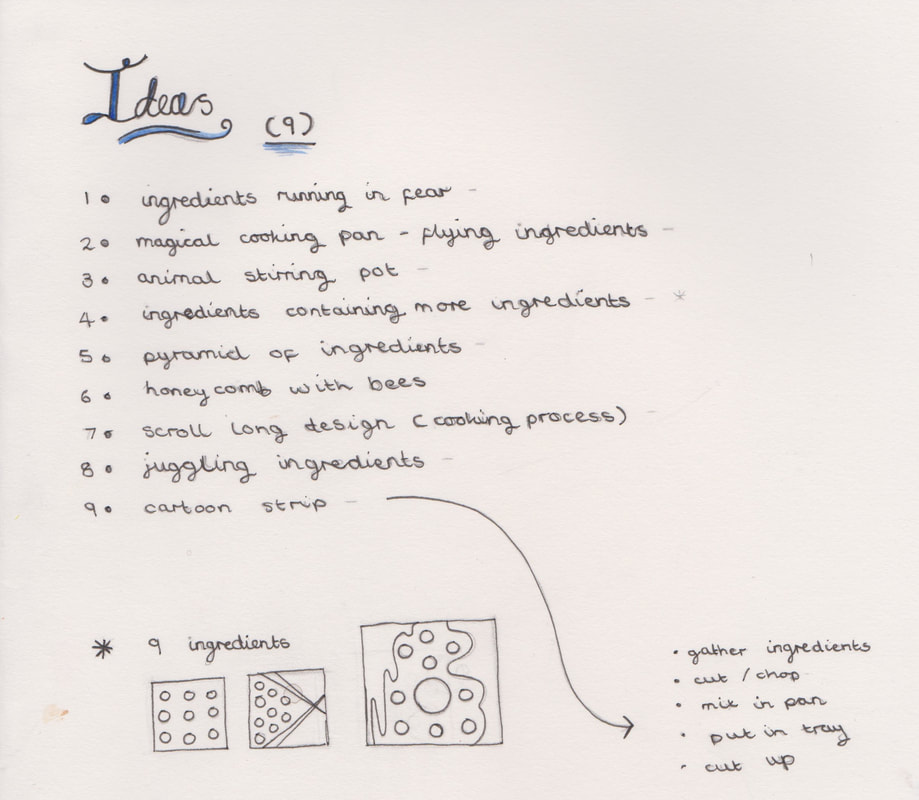 Ideas (9)
1. ingredients running in fear -
2. magical cooking pan - flying ingredients -
3. animal stirring pot -
4. ingredients containing more ingredients - *
5. pyramid of ingredients -
6. honeycomb with bees
7. scroll long design (cooking process) -
8. juggling ingredients -
9. cartoon strip -
* 9 ingredients
• gather ingredients
• cut / chop
• mix in pan
• put in tray
- cut up